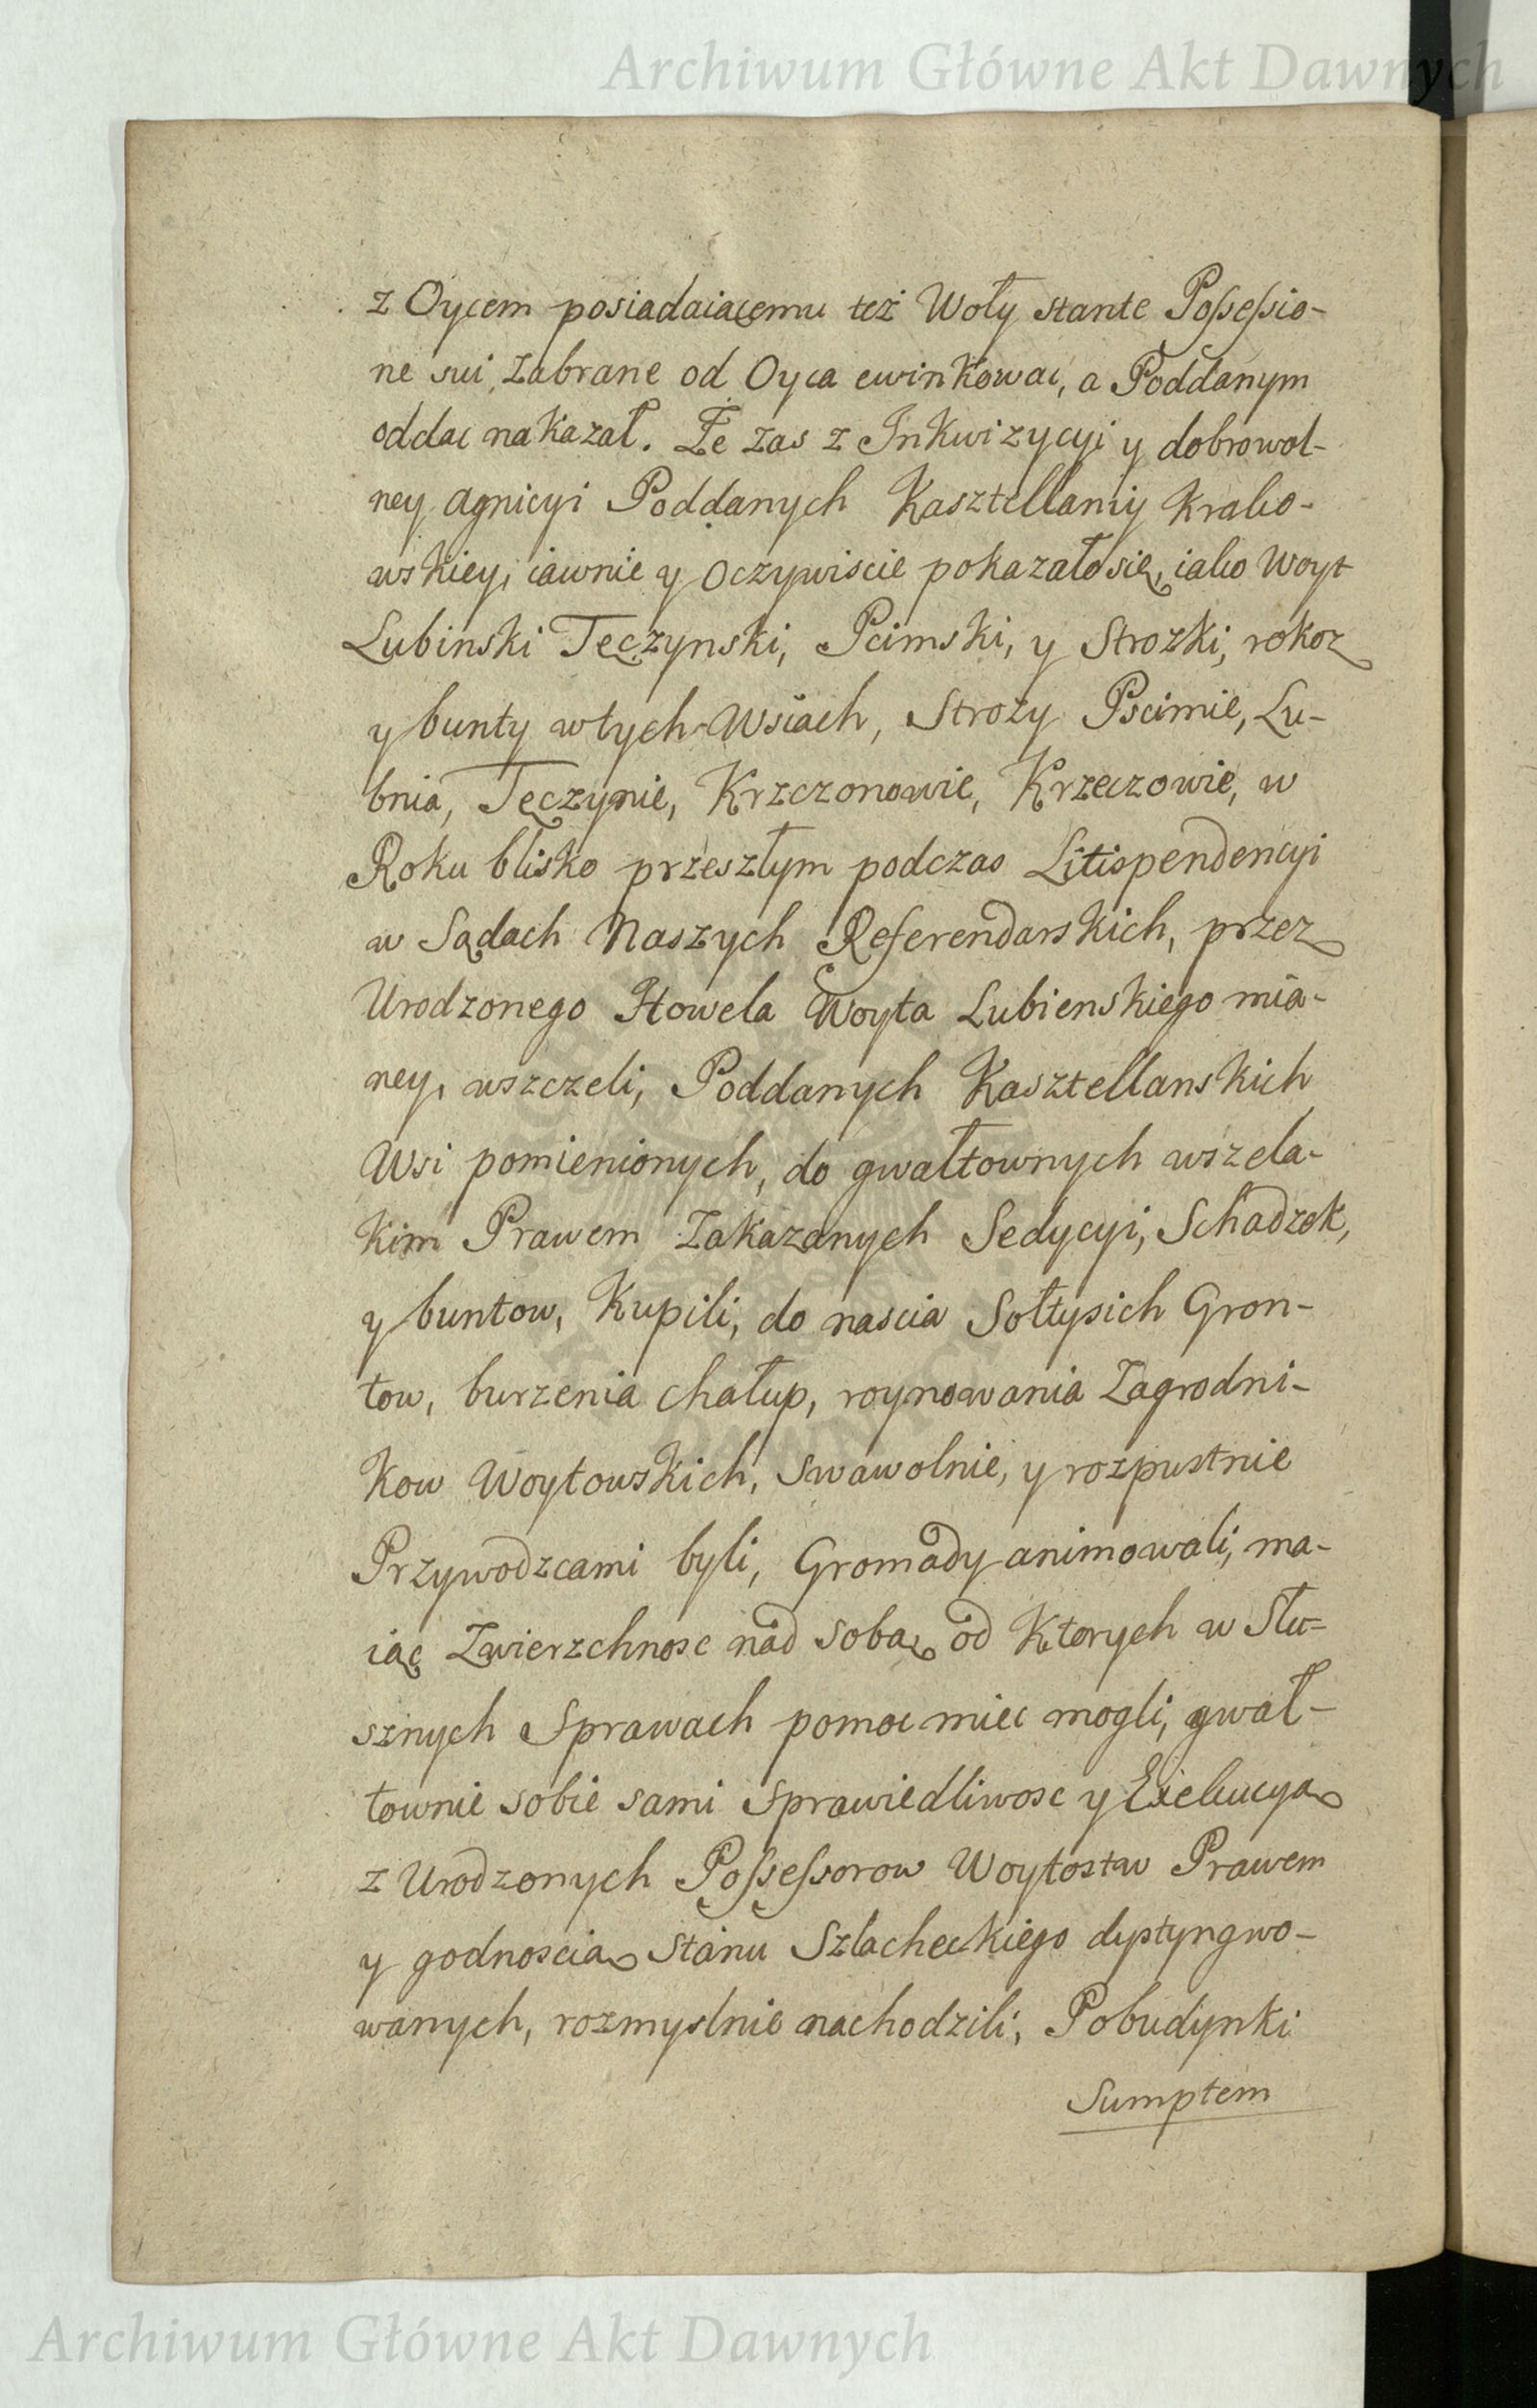 Archiwum Główne Akt Dawnych
z Oycem posiadaiącemu też Woły stante Possessio-
ne sui, zabrane od Oyca ewinkowac, a Poddanym
oddac nakazał. Że zas z Inkwizycyi y dobrowol-
ney agnicyi Poddanych Kasztellaniy Krako-
wskiey, iawnie y oczywiscie pokazało się, iako Woyt
Lubinski Tęczynski, Pcimski, y Strozki, rokosz
y bunty w tych Wsiach, Strozy Pscimie, Lu-
bnia, Tęczynie, Krzczonowie, Krzeczowie, w
Roku blisko przeszłym podczas Litispendencyi
w Sądach Naszych Referendarskich, przez
Urodzonego Howela Woyta Lubienskiego mia-
ney, wszczeli, Poddanych Kasztellanskich
Wsi pomienionych, do gwałtownych wszela-
kim Prawem Zakazanych Sedycyi, Schadzek,
y buntow, Kupili, do nascia Sołtysich Gron-
tow, burzenia chałup, roynowania Zagrodni-
kow Woytowskich, swawolnie, y rozpustnie
Przywodzcami byli, Gromady animowali, ma-
iąc Zwierzchnosc nad sobą, od Ktorych w Słu-
sznych Sprawach pomoc miec mogli, gwał-
townie sobie sami sprawiedliwosc y Exekucyą
z Urodzonych Possessorow Woytostw Prawem
y godnoscią Stanu Szlacheckiego dystyngwo-
wanych, rozmyslnie nachodzili, Pobudynki
Sumptem
Archiwum Główne Akt Dawnych